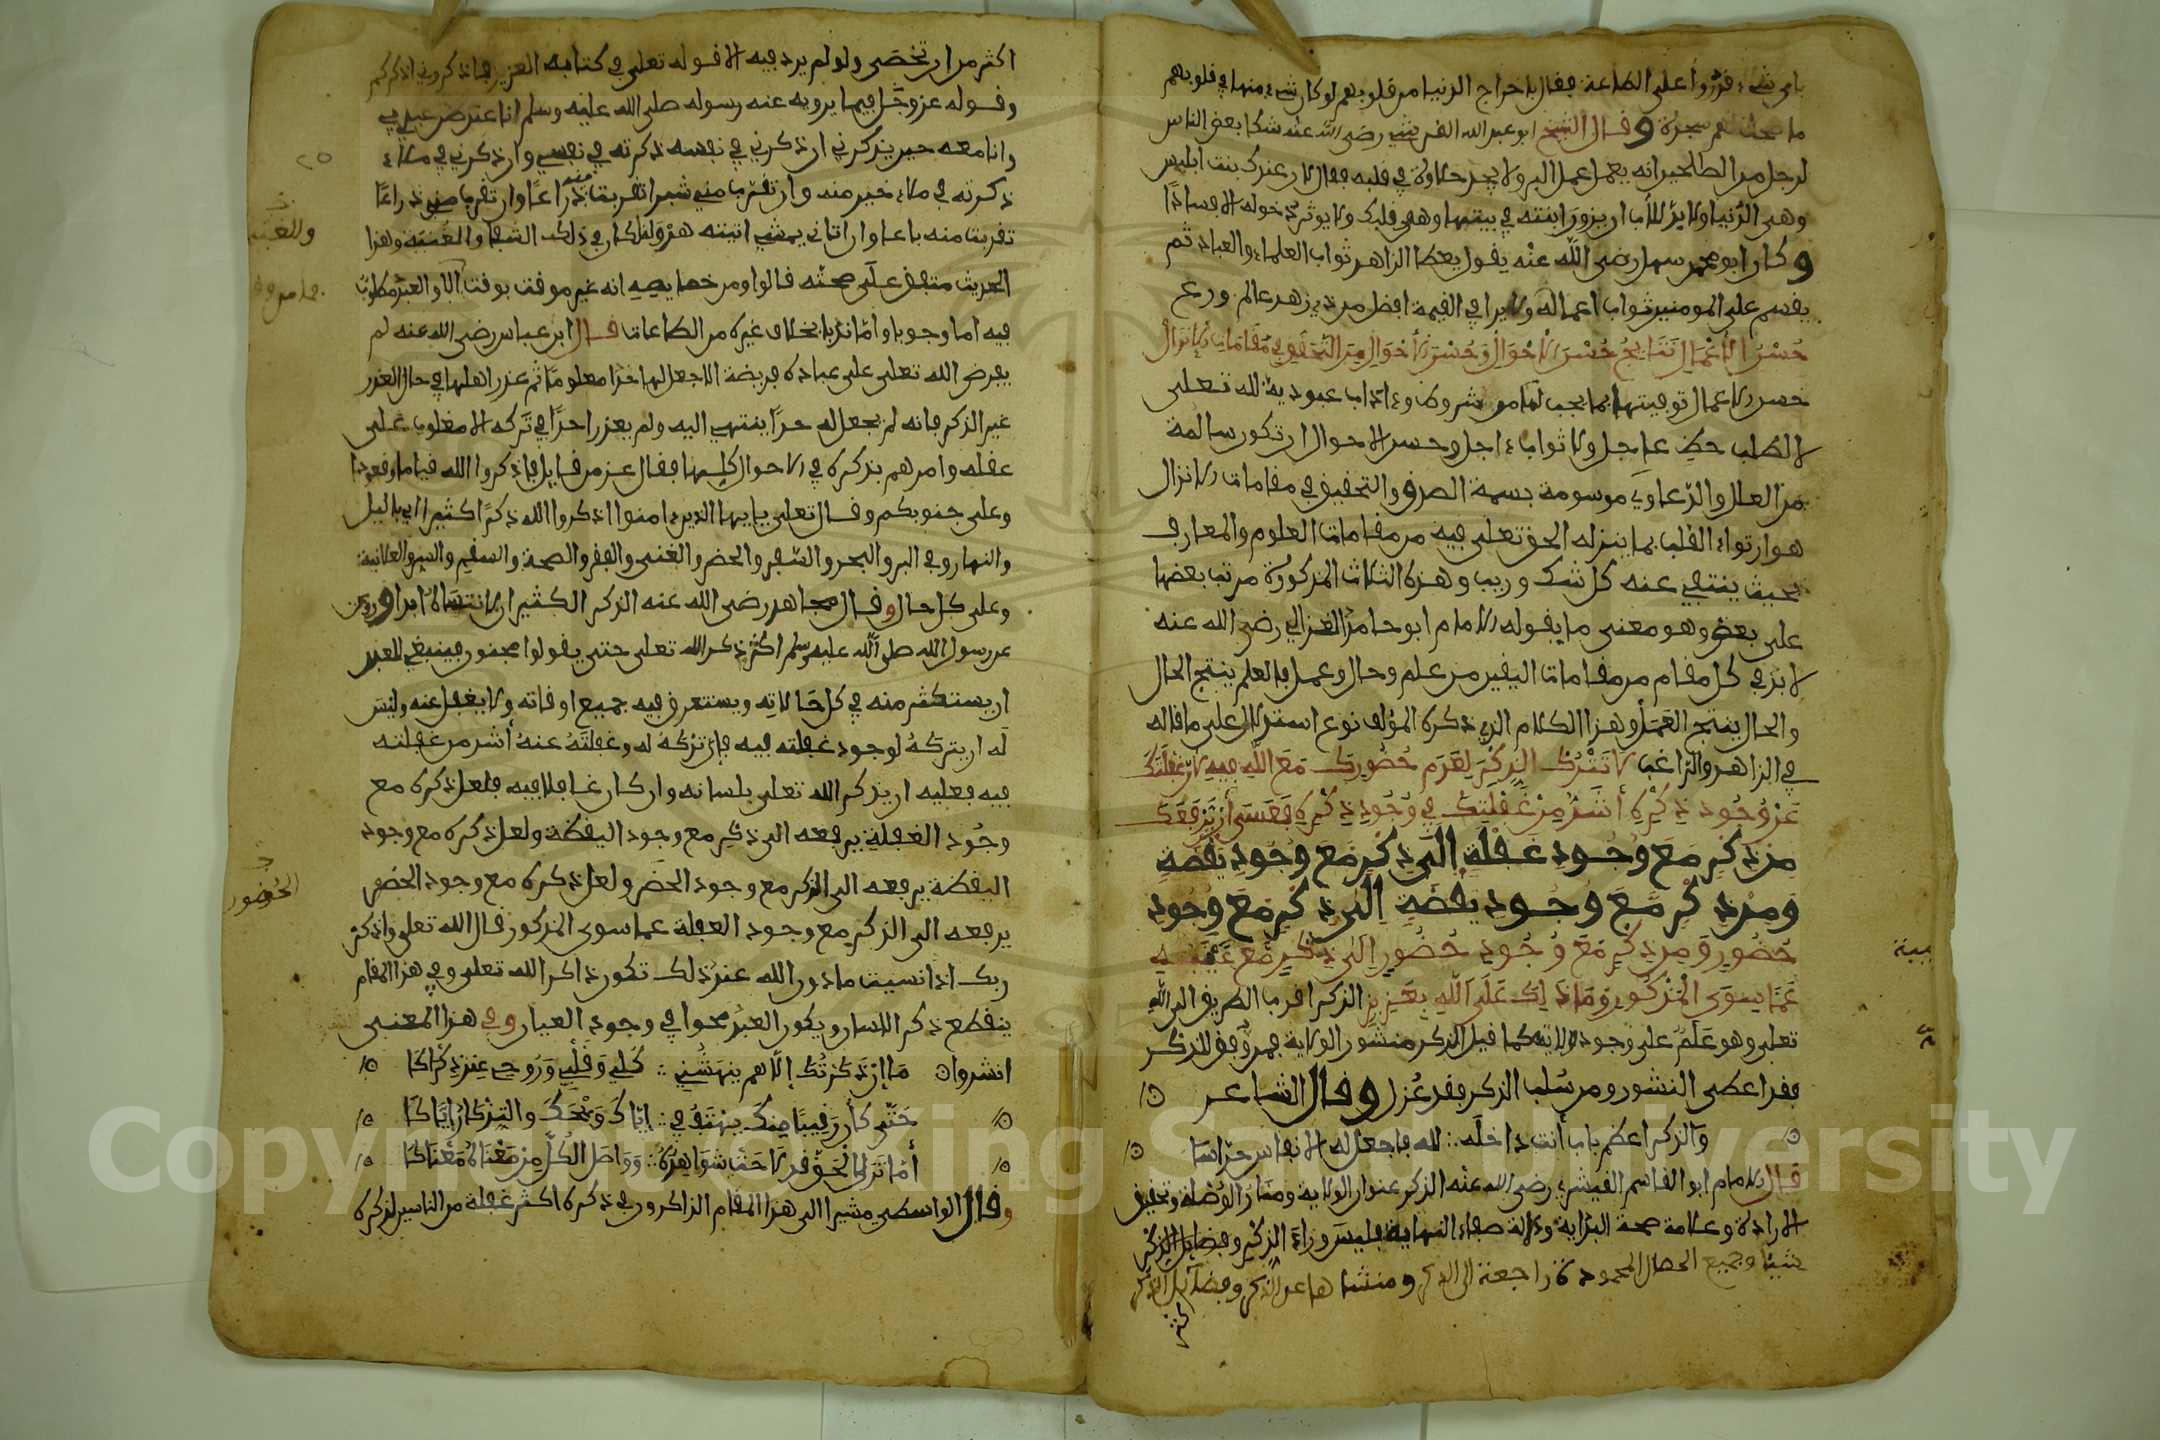 باي شيء قدروا على الطاعة فقال باخراج الدنيا من قلوبهم لو كان شيء منها في قلوبهم
ما صحت لهم سجدة وقال الشيخ ابو عبد الله القرشي رضي الله عنه شكا بعض الناس
لرجل من الصالحين انه يعمل عمل البر ولا يجد حلاوة في قلبه فقال لان عندك بنت ابليس
وهي الدنيا ولا بد للاب ان يزور ابنته في بيتها وهي قلبك ولا يوثر دخوله الا فسادا
وكان ابو محمد سهل رضي الله عنه يقول يعطا الزاهد ثواب العلماء والعباد ثم
يقسم على المومنين ثواب اعماله ولا يرا في القيمة افضل من ذي زهد عالم ورع
حُسْنُ الأعْمَالِ نَتَايجُ حُسْنِ الأحْوَالِ وَحُسْنُ الأحْوَالِ مِنَ التَّحَقُّقِ فِي مَقَامَاتِ الإنزالِ
حسن الاعمال توفيتها بما يجب لها من شروط وءاداب عبودية لله تعلى
لا لطلب حظ عاجل ولا ثواب ءاجل وحسن الاحوال ان تكون سالمة
من العلل والدعاوي موسومة بسمة الصدق والتحقيق في مقامات الانزال
هو ارتواء القلب بما ينزله الحق تعلى فيه من مقامات العلوم والمعارف
بحيث ينتفي عنه كل شك وريب وهذه الثلاث المذكورة مرتب بعضها
على بعض وهو معنى ما يقوله الامام ابو حامد الغزالي رضي الله عنه
لا بد في كل مقام من مقامات اليقين من علم وحال وعمل فالعلم ينتج الحال
والحال ينتج العمل وهذا الكلام الذي ذكره المؤلف نوع استدلال على ما قاله
في الزاهد والراغب لا تَتْرُكِ الذِّكْرَ لِعَدَمِ حُضُورِكَ مَعَ اللَّهِ فِيهِ لأنَّ غَفْلَتَكَ
عَنْ وُجُودِ ذِكْرِهِ أشَدُّ مِنْ غَفْلَتِكَ فِي وُجُودِ ذِكْرِهِ فَعَسَى أنْ يَرْفَعَكَ
مِن ذِكْرٍ مَعَ وُجُودِ غَفْلَةٍ إِلَى ذِكْرٍ مَعَ وُجُودِ يَقَضَةٍ
وَمِن ذِكْرٍ مَعَ وُجُودِ يَقَضَةٍ إِلَى ذِكْرٍ مَعَ وُجُودِ
حُضُورٍ وَمِن ذِكْرٍ مَعَ وُجُودِ حُضُورٍ إِلَى ذِكْرٍ مَعَ غَيْبَةٍ
عَمَّا سِوَى الْمَذْكُورِ وَمَا ذَلِكَ عَلَى اللَّهِ بِعَزِيزٍ الذكر اقرب الطريق الى الله
تعلى وهو عَلَم على وجود ولايته كما قيل الذكر منشور الولاية فمن وُفق للذكر
فقد اعطى المنشور ومن سُلب الذكر فقد عُزل وقال الشاعر
والذكر اعظم باب أنت داخله ∴ لله فاجعل له الانفاس حراسا
قال الامام ابو القاسم القشيري رضي الله عنه الذكر عنوان الولاية ومنار الوصلة وتحقيق
الارادة وعلامة صحة البداية ودلالة صفاء النهاية فليس وراء الذكر
شيء وجميع الخصال المحمودة راجعة الى الذكر ومنشاها عن الذكر وفضائل الذكر
اكثر من ان تحصى ولو لم يرد فيه الا قوله تعلى في كتابه العزيز فاذكروني اذكركم
وقوله عز وجل فيما يرويه عنه رسوله صلى الله عليه وسلم انا عند ظن عبدي بي
وانا معه حين يذكرني ان ذكرني في نفسه ذكرته في نفسي وان ذكرني في ملاء
ذكرته في ملاء خير منه وان تقرب مني شبرا تقربت منه ذراعًا وان تقرب مني ذراعًا
تقربت منه باعا وان اتاني يمشي اتيته هرولة
الحديث متفق على صحته قالوا ومن خصايصه انه غير موقت بوقت
فيه اما وجوبا واما ندبا بخلاف غيره من الطاعات قال ابن عباس رضي الله عنه لم
يفرض الله تعلى على عباده فريضة الا جعل لها حدا معلوما ثم عذر اهلها في حال العذر
غير الذكر فانه لم يجعل له حدًا ينتهي اليه ولم يعذر احدًا في تركه الا مغلوب على
عقله وامرهم بذكره في الاحوال كلها فقال عز من قايل فاذكروا الله قياما وقعودا
وعلى جنوبكم وقال تعلى يايها الذين ءامنوا اذكروا الله ذكرًا كثيرا اي بالليل
والنهار وفي البر والبحر والسفر والحضر والغنى والفقر والصحة والسقم والسر والعلانية
وعلى كل حال وقال مجاهد رضي الله عنه الذكر الكثير ان لا تنساه ابدا وروي
عن رسول الله صلى الله عليه وسلم اكثروا ذكر الله تعلى حتى يقولوا مجنون فينبغي للعبد
ان يستكثر منه في كل حَالاته ويستغرق فيه جميع اوقاته ولا يغفل عنه وليس
لَه ان يتركهُ لوجود غفلته فيه فإن تركهُ لَه وغفلتهُ عنهُ أشد من غفلته
فيه فعليه ان يذكر الله تعلى بلسانه وان كان غافلا فيه فلعل ذكره مع
وجُود الغفلة يرفعه الى ذكر مع وجود اليقظة ولعل ذكره مع وجود
اليقظة يرفعه الى الذكر مع وجود الحضور ولعل ذكره مع وجود الحضور
يرفعه الى الذكر مع وجود الغفلة عما سوى المذكور قال الله تعلى واذكر
ربك اذا نسيت ما دون الله عند ذلك تكون ذاكر الله تعلى وفي هذا المقام
ينقطع ذكر اللسان ويكون العبدُ محوا في وجود العيان وفي هذا المعنى
انشدوا مَا إنْ ذَكَرْتُكَ إلَّا هم ينهشُني ∴ كُلِّي وَقَلْبِي وَرُوحِي عِنْدَ ذِكْرَاكَا
حَتَّى كأن رَقِيبًا مِنكَ يهتفُ بي ∴ إيَّاكَ وَيْحَكَ والتِّذْكَارَ إيَّاكَا
أمَا تَرَى الْحَقَّ قد لَاحَتْ شَوَاهِدُهُ ∴ وَوَاصَلَ الكُلَّ مِنْ مَعْنَاهُ مَعْنَاكَا
وقال الواسطي مشيرا الى هذا المقام الذاكرون في ذكره اكثر غفلة من الناسين لذكره
الحُضور